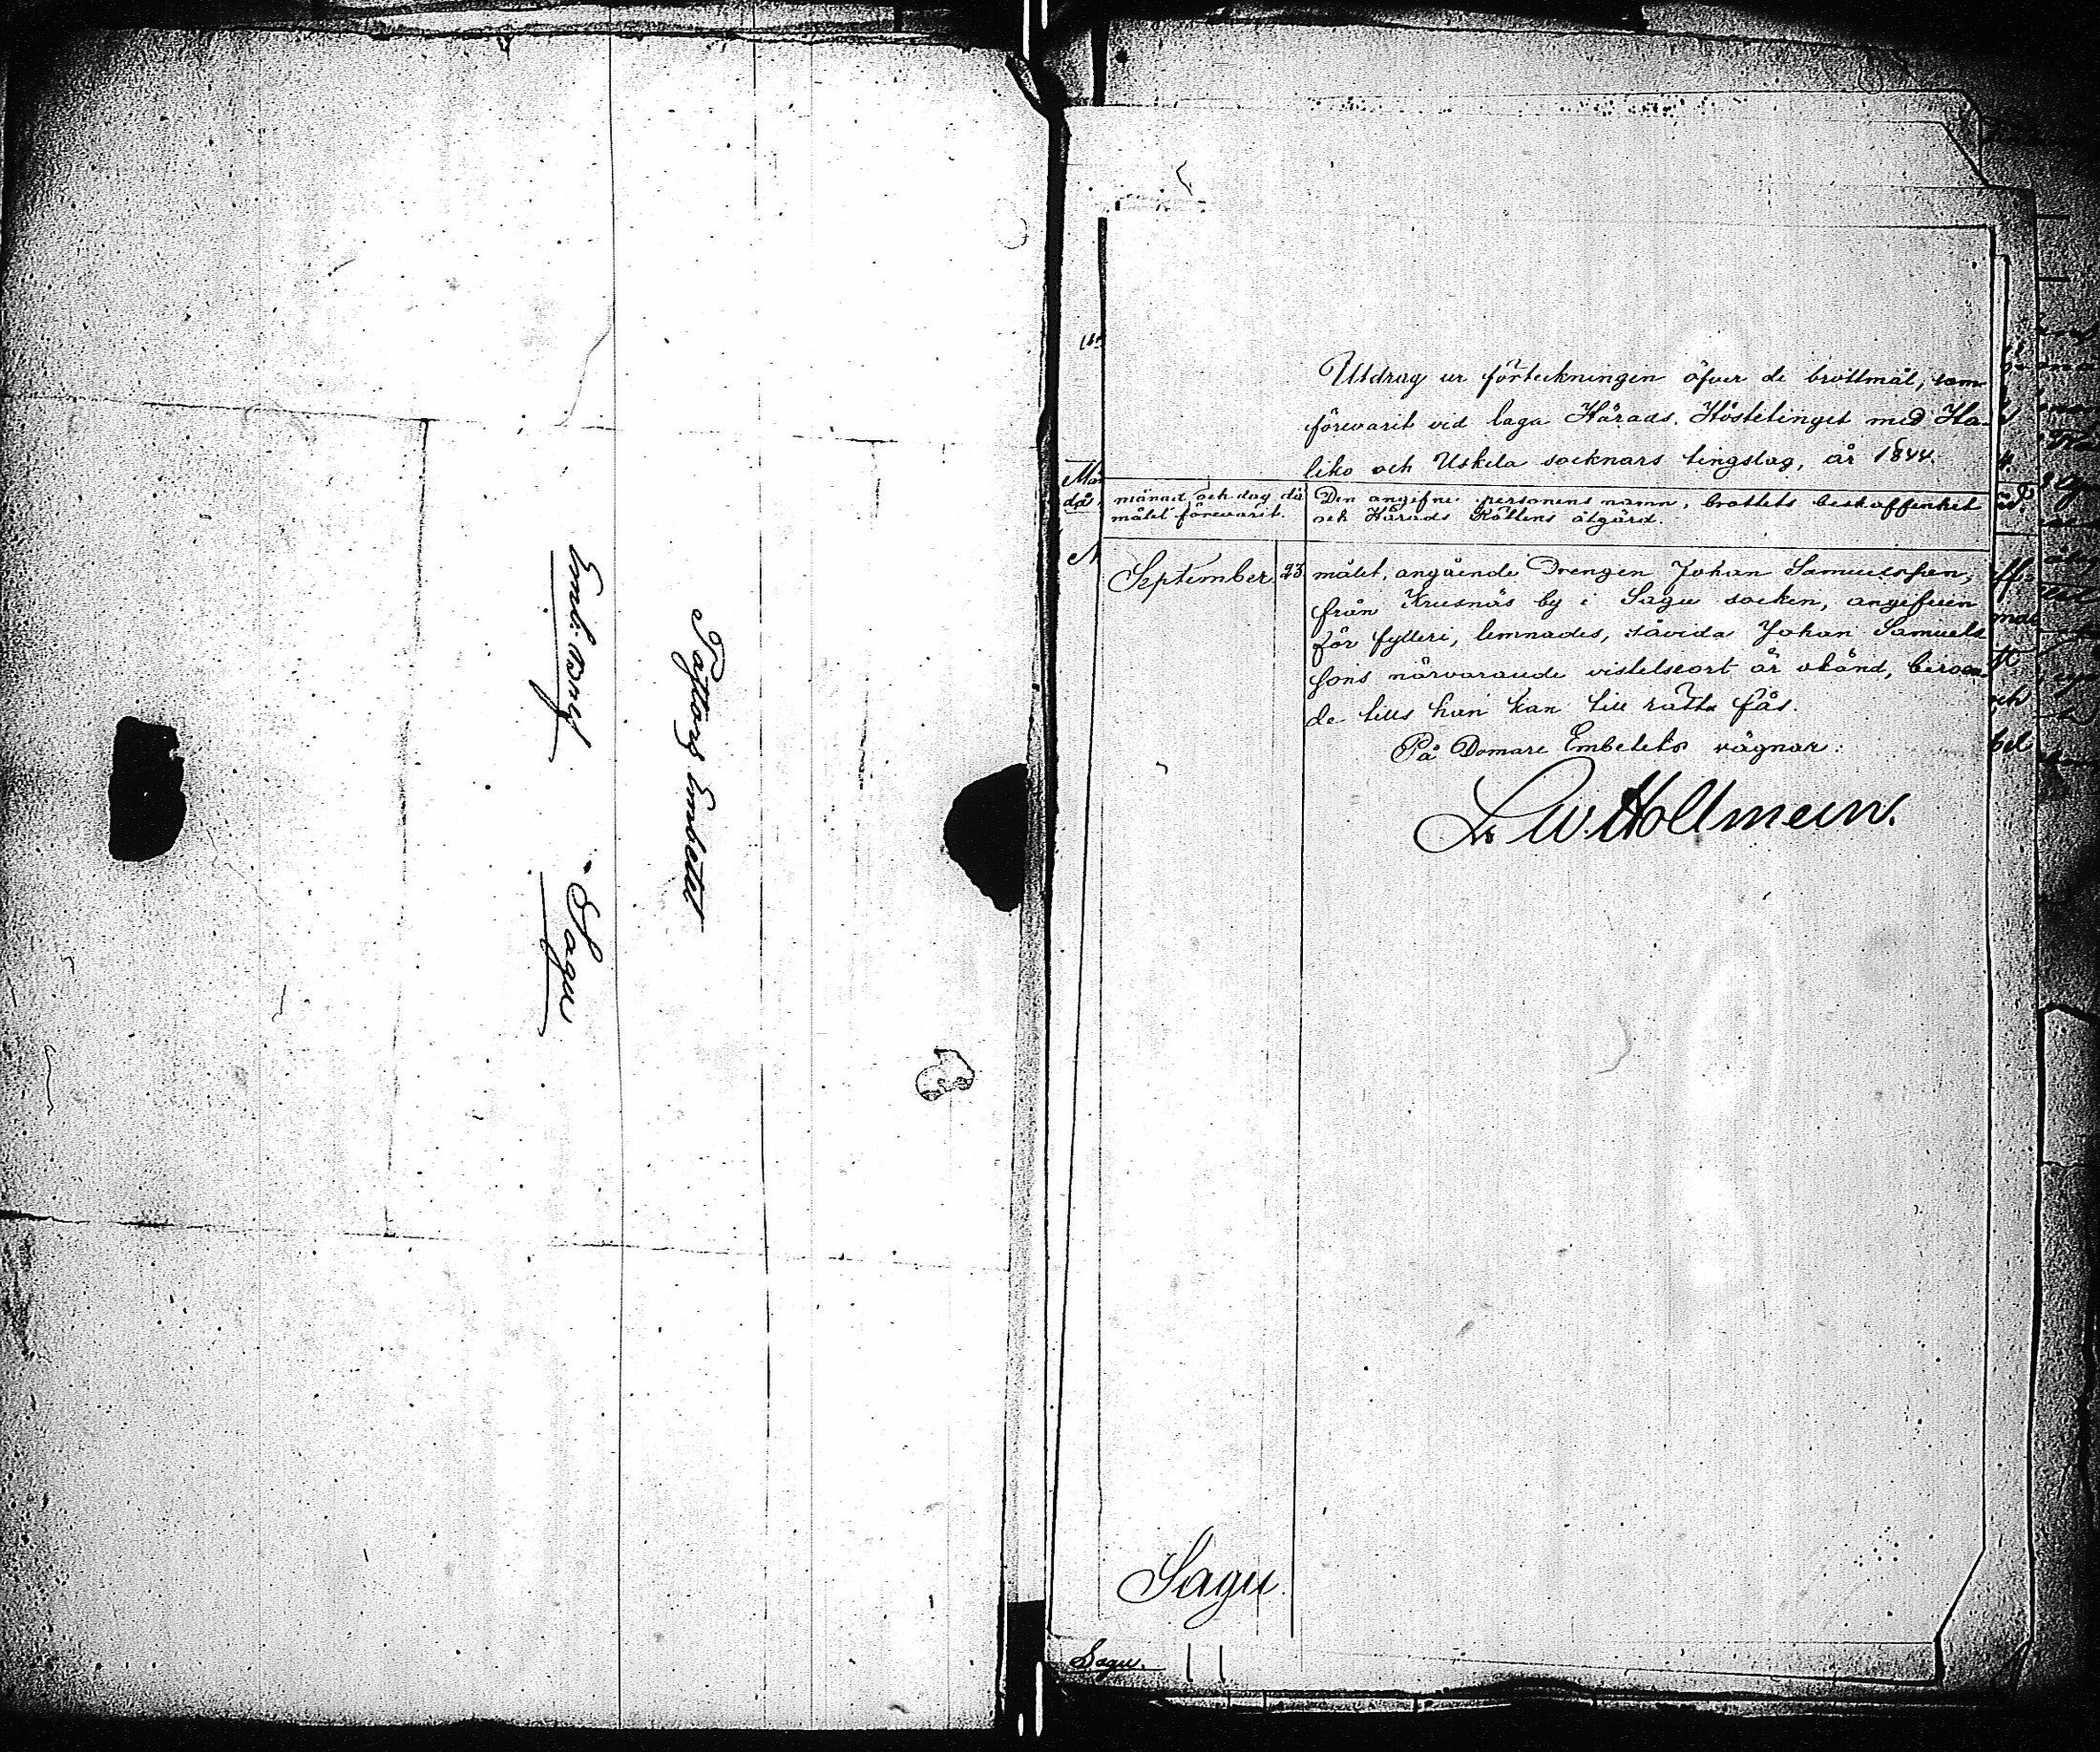 Pastors Embetet
Embetsbref
Sagu
Utdrag ur förteckningen öfver de brottmål, som
förevarit vid laga Härads Höstetinget med Ha-
liko och Uskela socknars tingslag, år 1844.
månad och dag då
målet förevarit.
Den angifne personens namn, brottets beskaffenhet
och Härads Rättens åtgärd.
September 23
målet, angående Drengen Johan Samuelsson,
från Krusnäs by i Sagu socken, angifven
för fylleri, lemnades, såvida Johan Samuels
sons närvarande vistelseort är okänd, beroen-
de tills han kan till rätta fås.
På Domare Embetets vägnar:
Sagu.
Sagu.